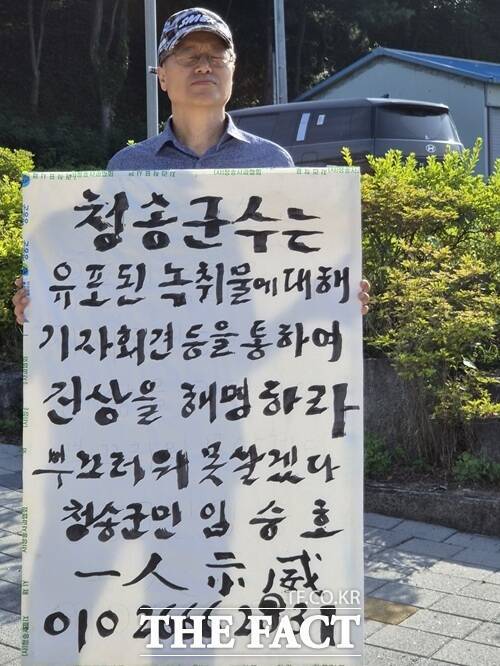 청송군수는
유포된 녹취물에 대해
기자회견 등을 통하여
진상을 해명하라
부끄러워 못살겠다
청송군민 임승호
一人示威
010 2666
TF.CO.KR
THE FACT